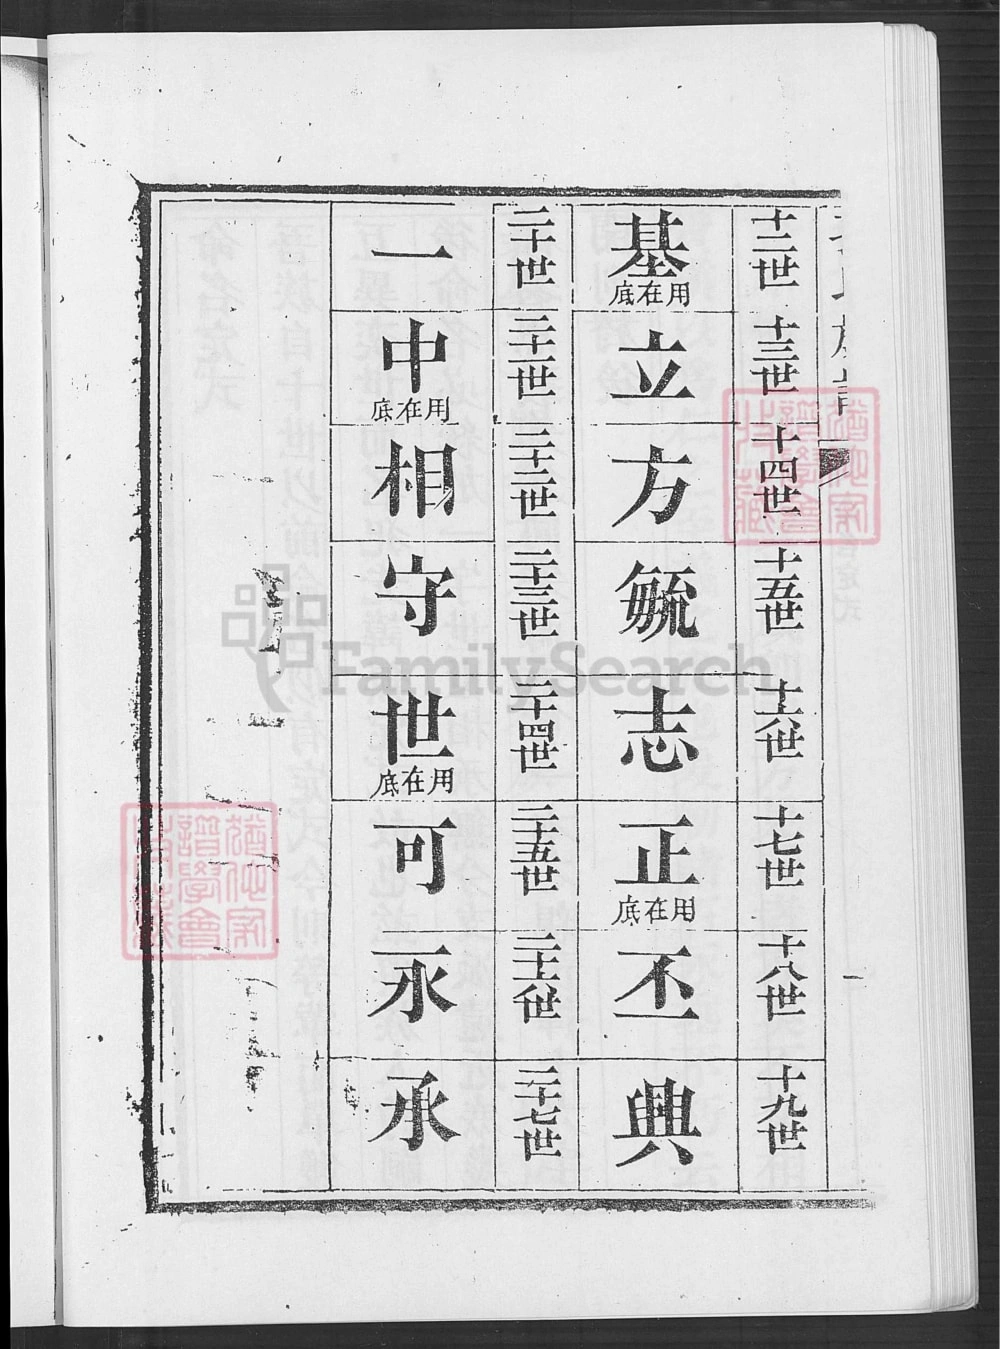 十二世
十三世
十四世
十五世
十六世
十七世
十八世
十九世
基 用在底
立
方
毓
志
正 用在底
丕
興
二十世
二十一世
二十二世
二十三世
二十四世
二十五世
二十六世
二十七世
一
中 用在底
相
守
世 用在底
可
永
承
FamilySearch